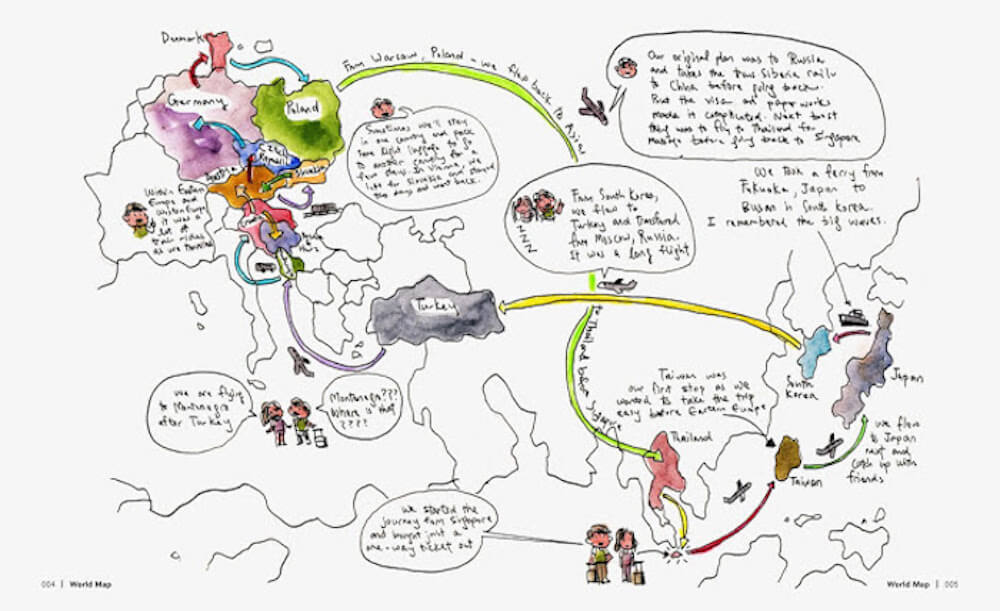 Denmark
Germany
Poland
Czech
Slovakia
From Warsaw, Poland - we flew back to Asia
Our original plan was to Russia
and takes the trans Siberia railw
to China before going back.
But the visa and paper works
made it complicated. Next best
thing was to fly to Thailand for
before going back to Singapore
Sometimes we'll stay
in one country and pack
light luggage to go
to another country for a
few days. In Vienna, we
Slovakia and stayed
few days and went back.
Within Eastern
Europe and
Western Europe
it was
train rides
as we travelled
We took a ferry from
Fukuoka, Japan to
Busan in South Korea.
I remembered the big waves.
From South Korea,
we flew to
Turkey and transferred
from Moscow, Russia.
It was a long flight
ZZZ
Turkey
to Thailand before Singapore
we are flying
to Montenegro
after Turkey
Montenegro???
Where is that
????
South
Korea
Japan
Taiwan was
our first stop as we
wanted to take the trip
easy before Eastern Europe
Thailand
Taiwan
we flew
to Japan
next and
catch up with
friends
we started the
journey from Singapore
and bought just a
one-way ticket out
004 | World Map
World Map | 005